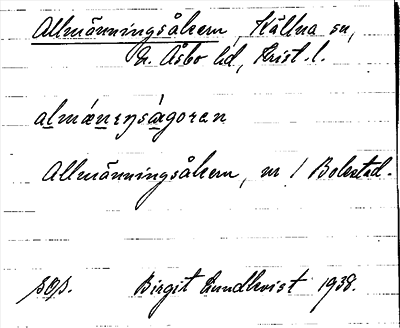 Allmänningsåkern, Källna sn,
N. Åsbo hd, Krist. l.
almáneŋságoren
Allmänningsåkern, nr 1 Bolestad.
sOs. Birgit Lundkvist 1938.